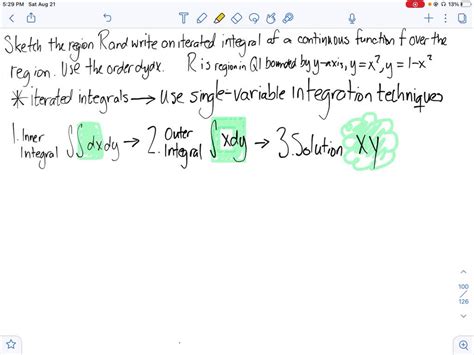 5:29 PM Sat Aug 21
13%
Sketch the region R and write an iterated integral of a continuous function f over the
region. Use the order dydx. R is region in Q1 bounded by y-axis, y=x², y=1-x²
* iterated integrals → Use single-variable integration techniques
1. Inner Integral ∫∫dxdy → 2. Outer Integral ∫xdy → 3. Solution xy
100
126